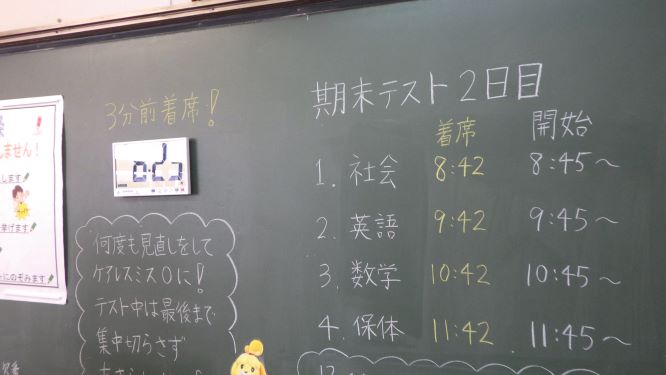 期末テスト2日目
3分前着席!
着席 開始
1. 社会 8:42 8:45~
2. 英語 9:42 9:45~
3. 数学 10:42 10:45~
4. 保体 11:42 11:45~
何度も見直しをして
ケアレスミス0に!
テスト中は最後まで
集中切らさず
ません!
します
挙げます
にのぞみます